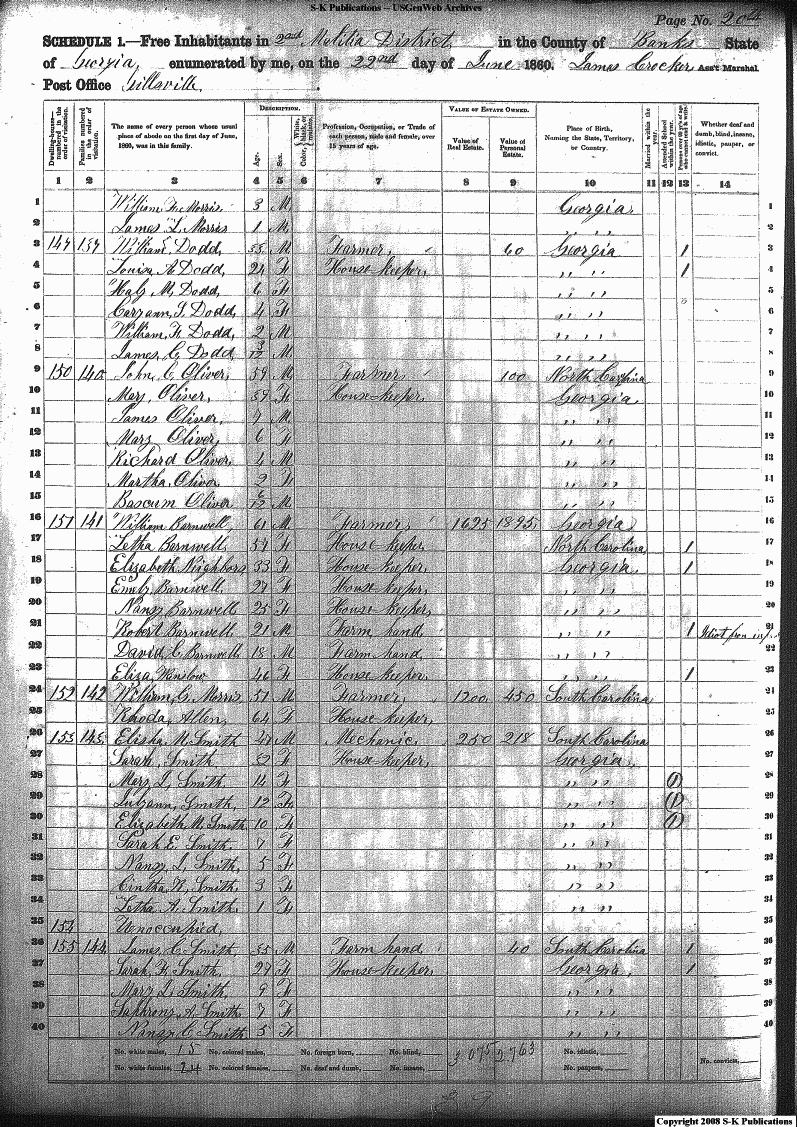 S-K Publications -- USGenWeb Archives
Page No. 204
SCHEDULE 1.—Free Inhabitants in 2nd Militia District in the County of Banks State
of Georgia, enumerated by me, on the 22nd day of June 1860. James Crocker Ass't Marshal.
Post Office Gillsville,
Dwelling-houses—numbered in the order of visitation. Families numbered in the order of visitation. The name of every person whose usual place of abode on the first day of June, 1860, was in this family. DESCRIPTION. Age. Sex. Color, White, black, or mulatto. Profession, Occupation, or Trade of each person, male and female, over 15 years of age. VALUE OF ESTATE OWNED. Value of Real Estate. Value of Personal Estate. Place of Birth, Naming the State, Territory, or Country. Married within the year. Attended School within the year. Persons over 20 y'rs of age who cannot read & write. Whether deaf and dumb, blind, insane, idiotic, pauper, or convict.
1 2 3 4 5 6 7 8 9 10 11 12 13 14
1 William Morris, 3 M, Georgia, 1
2 James L. Morris 1 M, ,, ,, 2
3 William Dodd, 55 M, Farmer, 60 Georgia 1 3
4 Louisa A. Dodd, 24 F House keeper, ,, ,, 1 4
5 M. Dodd, 6 F ,, ,, 5
6 Caryann, S. Dodd, 4 F ,, ,, 6
7 William, F. Dodd, 2 M, ,, ,, 7
8 James, C. Dodd 3/12 M, ,, ,, 8
9 150 140 John, C. Oliver, 59 M, Farmer, 100 North Carolina 9
10 Mary, Oliver, 39 F, House keeper, Georgia, 10
11 James Oliver, M, ,, ,, 11
12 Mary Oliver, 6 F ,, ,, 12
13 Richard Oliver, 4 M, ,, ,, 13
14 Martha, Oliver, 2 F ,, ,, 14
15 Bascum Oliver 6/12 M, ,, ,, 15
16 151 141 William Barnwell, 61 M, Farmer, 1695 1895, Georgia, 16
17 Letha Barnwell, F, House keeper, North Carolina, 1 17
18 Elizabeth Neighbors 33 F, House keeper, Georgia, 1 18
19 Emily Barnwell, 27 F, House keeper, ,, ,, 19
20 Nancy Barnwell 25 F, House keeper, ,, ,, 20
21 Robert Barnwell, 21 M, Farm hand, ,, ,, 1 Idiot from 21
22 David, C. Barnwell 18 M, Farm hand, ,, ,, 22
23 Eliza, Winslow 46 F, House keeper, ,, ,, 1 23
24 152 142 William, C. Morris, 51 M, Farmer, 1200 450 South Carolina 24
25 Rhoda, Allen, 64 F, House keeper, 25
26 153 143, Elisha, M. Smith M, Mechanic, 250 218 South Carolina 26
27 Sarah, Smith F, House keeper, Georgia, 27
28 Mary, J, Smith 14 F, ,, ,, 1 28
29 Smith, 12 F, ,, ,, 1 29
30 Elizabeth M. Smith 10 F, ,, ,, 1 30
31 Sarah E. Smith, 7 F, ,, ,, 31
32 Nancy, J, Smith, 5 F, ,, ,, 32
33 Cintha, Smith, 3 F, ,, ,, 33
34 Letha, A. Smith, 1 F, ,, ,, 34
35 154 Unoccupied, 35
36 155 144 James, C. Smith, 35 M Farm hand 40 South Carolina 1 36
37 Sarah, F. Smith, 29 F, House keeper, Georgia, 1 37
38 Mary, J, Smith, 9 F, ,, ,, 38
39 Saphrona, A. Smith, 7 F, ,, ,, 39
40 Nancy, C. Smith, 5 F, ,, ,, 40
No. white males, 15 No. colored males, No. foreign born, No. blind, 3075 2763 No. idiotic,
No. white females, 24 No. colored females, No. deaf and dumb, No. insane, No. paupers, No. convicts,
Copyright 2008 S-K Publications